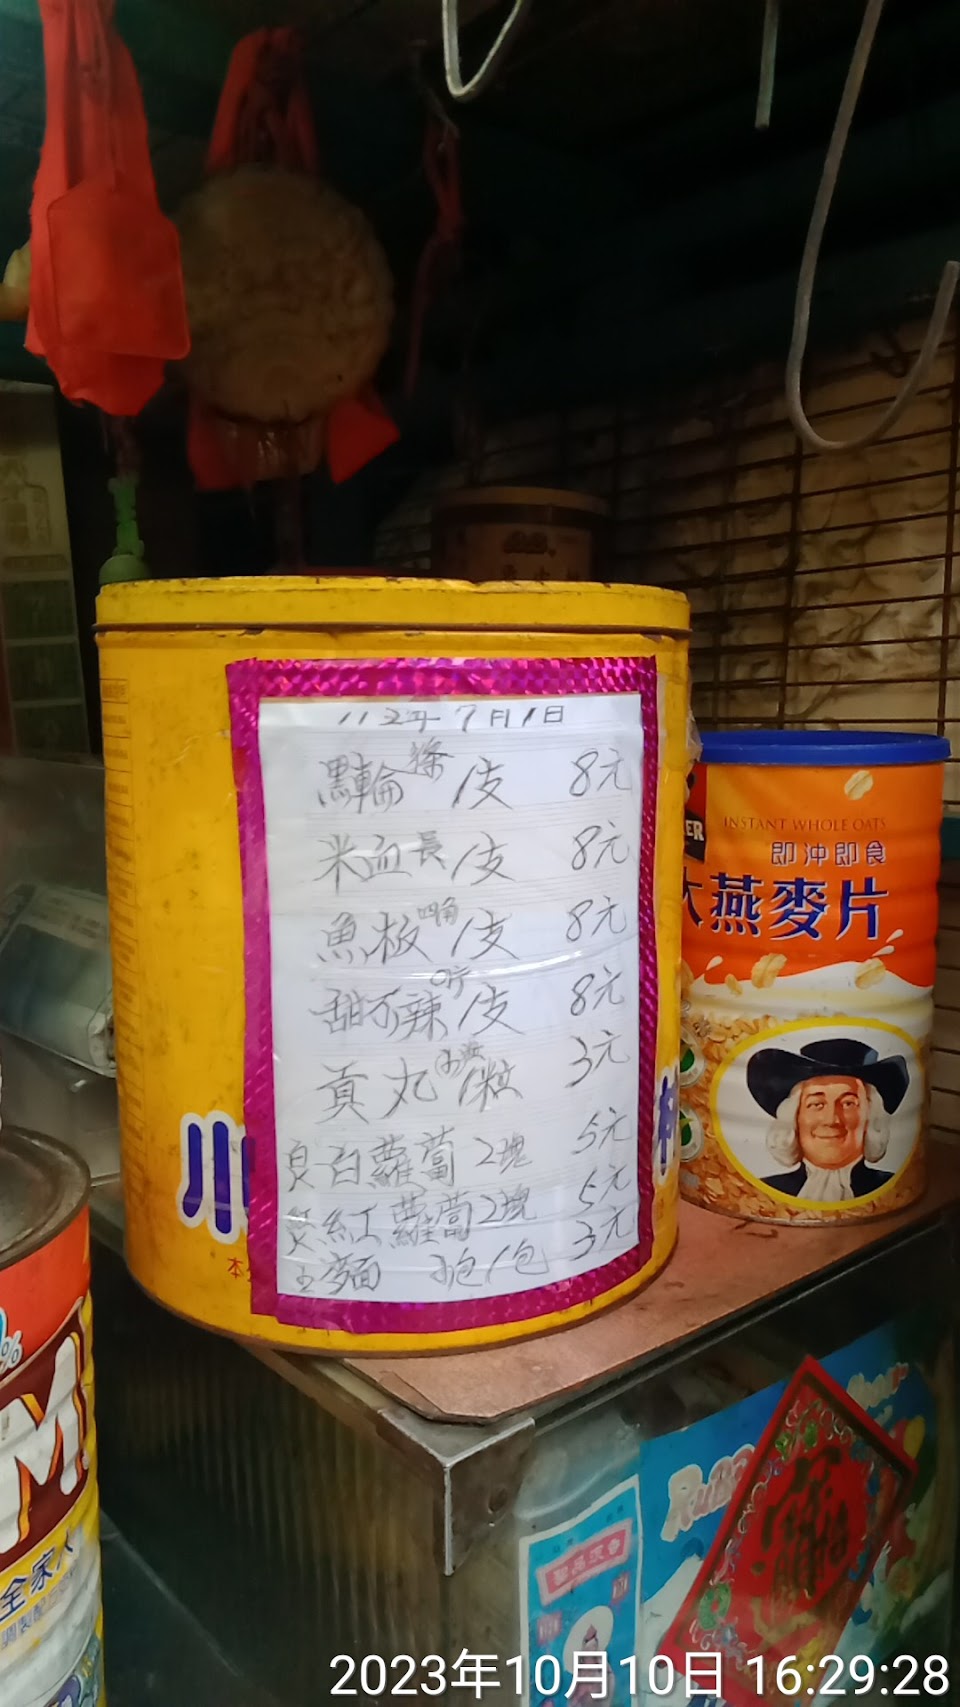 112年7月1日
黑輪條1支 8元
米血長1支 8元
魚板四角1支 8元
甜不辣1支 8元
貢丸1粒 3元
白蘿蔔2塊 5元
紅蘿蔔2塊 5元
麵 1包 3元
小
本
INSTANT WHOLE OATS
即沖即食
大燕麥片
全家人
%
2023年10月10日 16:29:28